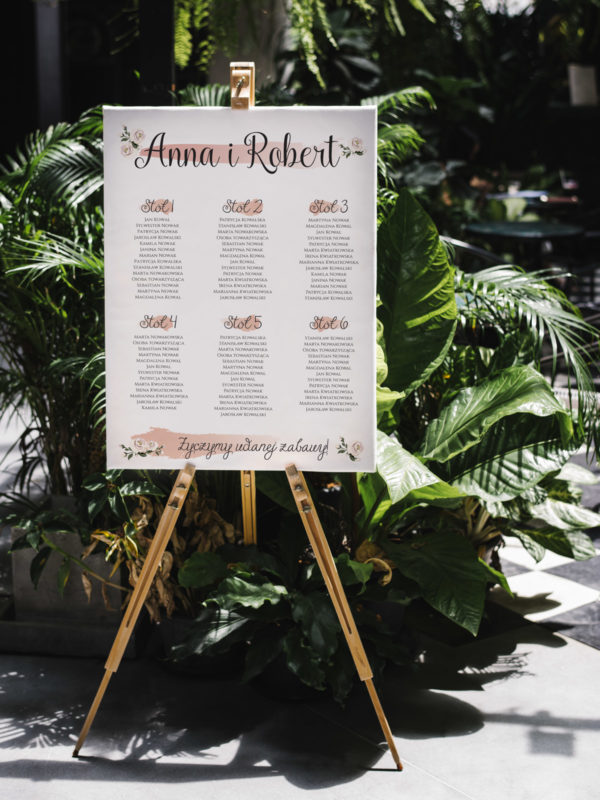 Anna i Robert
Stół 1
Jan Kowal
Sylwester Nowak
Patrycja Nowak
Jarosław Kowalski
Kamila Nowak
Janina Nowak
Marian Nowak
Patrycja Kowalska
Stanisław Kowalski
Marta Nowakowska
Osoba towarzysząca
Sebastian Nowak
Martyna Nowak
Magdalena Kowal
Stół 2
Patrycja Kowalska
Stanisław Kowalski
Marta Nowakowska
Osoba towarzysząca
Sebastian Nowak
Martyna Nowak
Magdalena Kowal
Jan Kowal
Sylwester Nowak
Patrycja Nowak
Marta Kwiatkowska
Irena Kwiatkowska
Marianna Kwiatkowska
Jarosław Kowalski
Stół 3
Martyna Nowak
Magdalena Kowal
Jan Kowal
Sylwester Nowak
Patrycja Nowak
Marta Kwiatkowska
Irena Kwiatkowska
Marianna Kwiatkowska
Jarosław Kowalski
Kamila Nowak
Janina Nowak
Marian Nowak
Patrycja Kowalska
Stanisław Kowalski
Stół 4
Marta Nowakowska
Osoba towarzysząca
Sebastian Nowak
Martyna Nowak
Magdalena Kowal
Jan Kowal
Sylwester Nowak
Patrycja Nowak
Marta Kwiatkowska
Irena Kwiatkowska
Marianna Kwiatkowska
Jarosław Kowalski
Kamila Nowak
Stół 5
Patrycja Kowalska
Stanisław Kowalski
Marta Nowakowska
Osoba towarzysząca
Sebastian Nowak
Martyna Nowak
Magdalena Kowal
Jan Kowal
Sylwester Nowak
Patrycja Nowak
Marta Kwiatkowska
Irena Kwiatkowska
Marianna Kwiatkowska
Jarosław Kowalski
Stół 6
Stanisław Kowalski
Marta Nowakowska
Osoba towarzysząca
Sebastian Nowak
Martyna Nowak
Magdalena Kowal
Jan Kowal
Sylwester Nowak
Patrycja Nowak
Marta Kwiatkowska
Irena Kwiatkowska
Marianna Kwiatkowska
Jarosław Kowalski
Życzymy udanej zabawy!